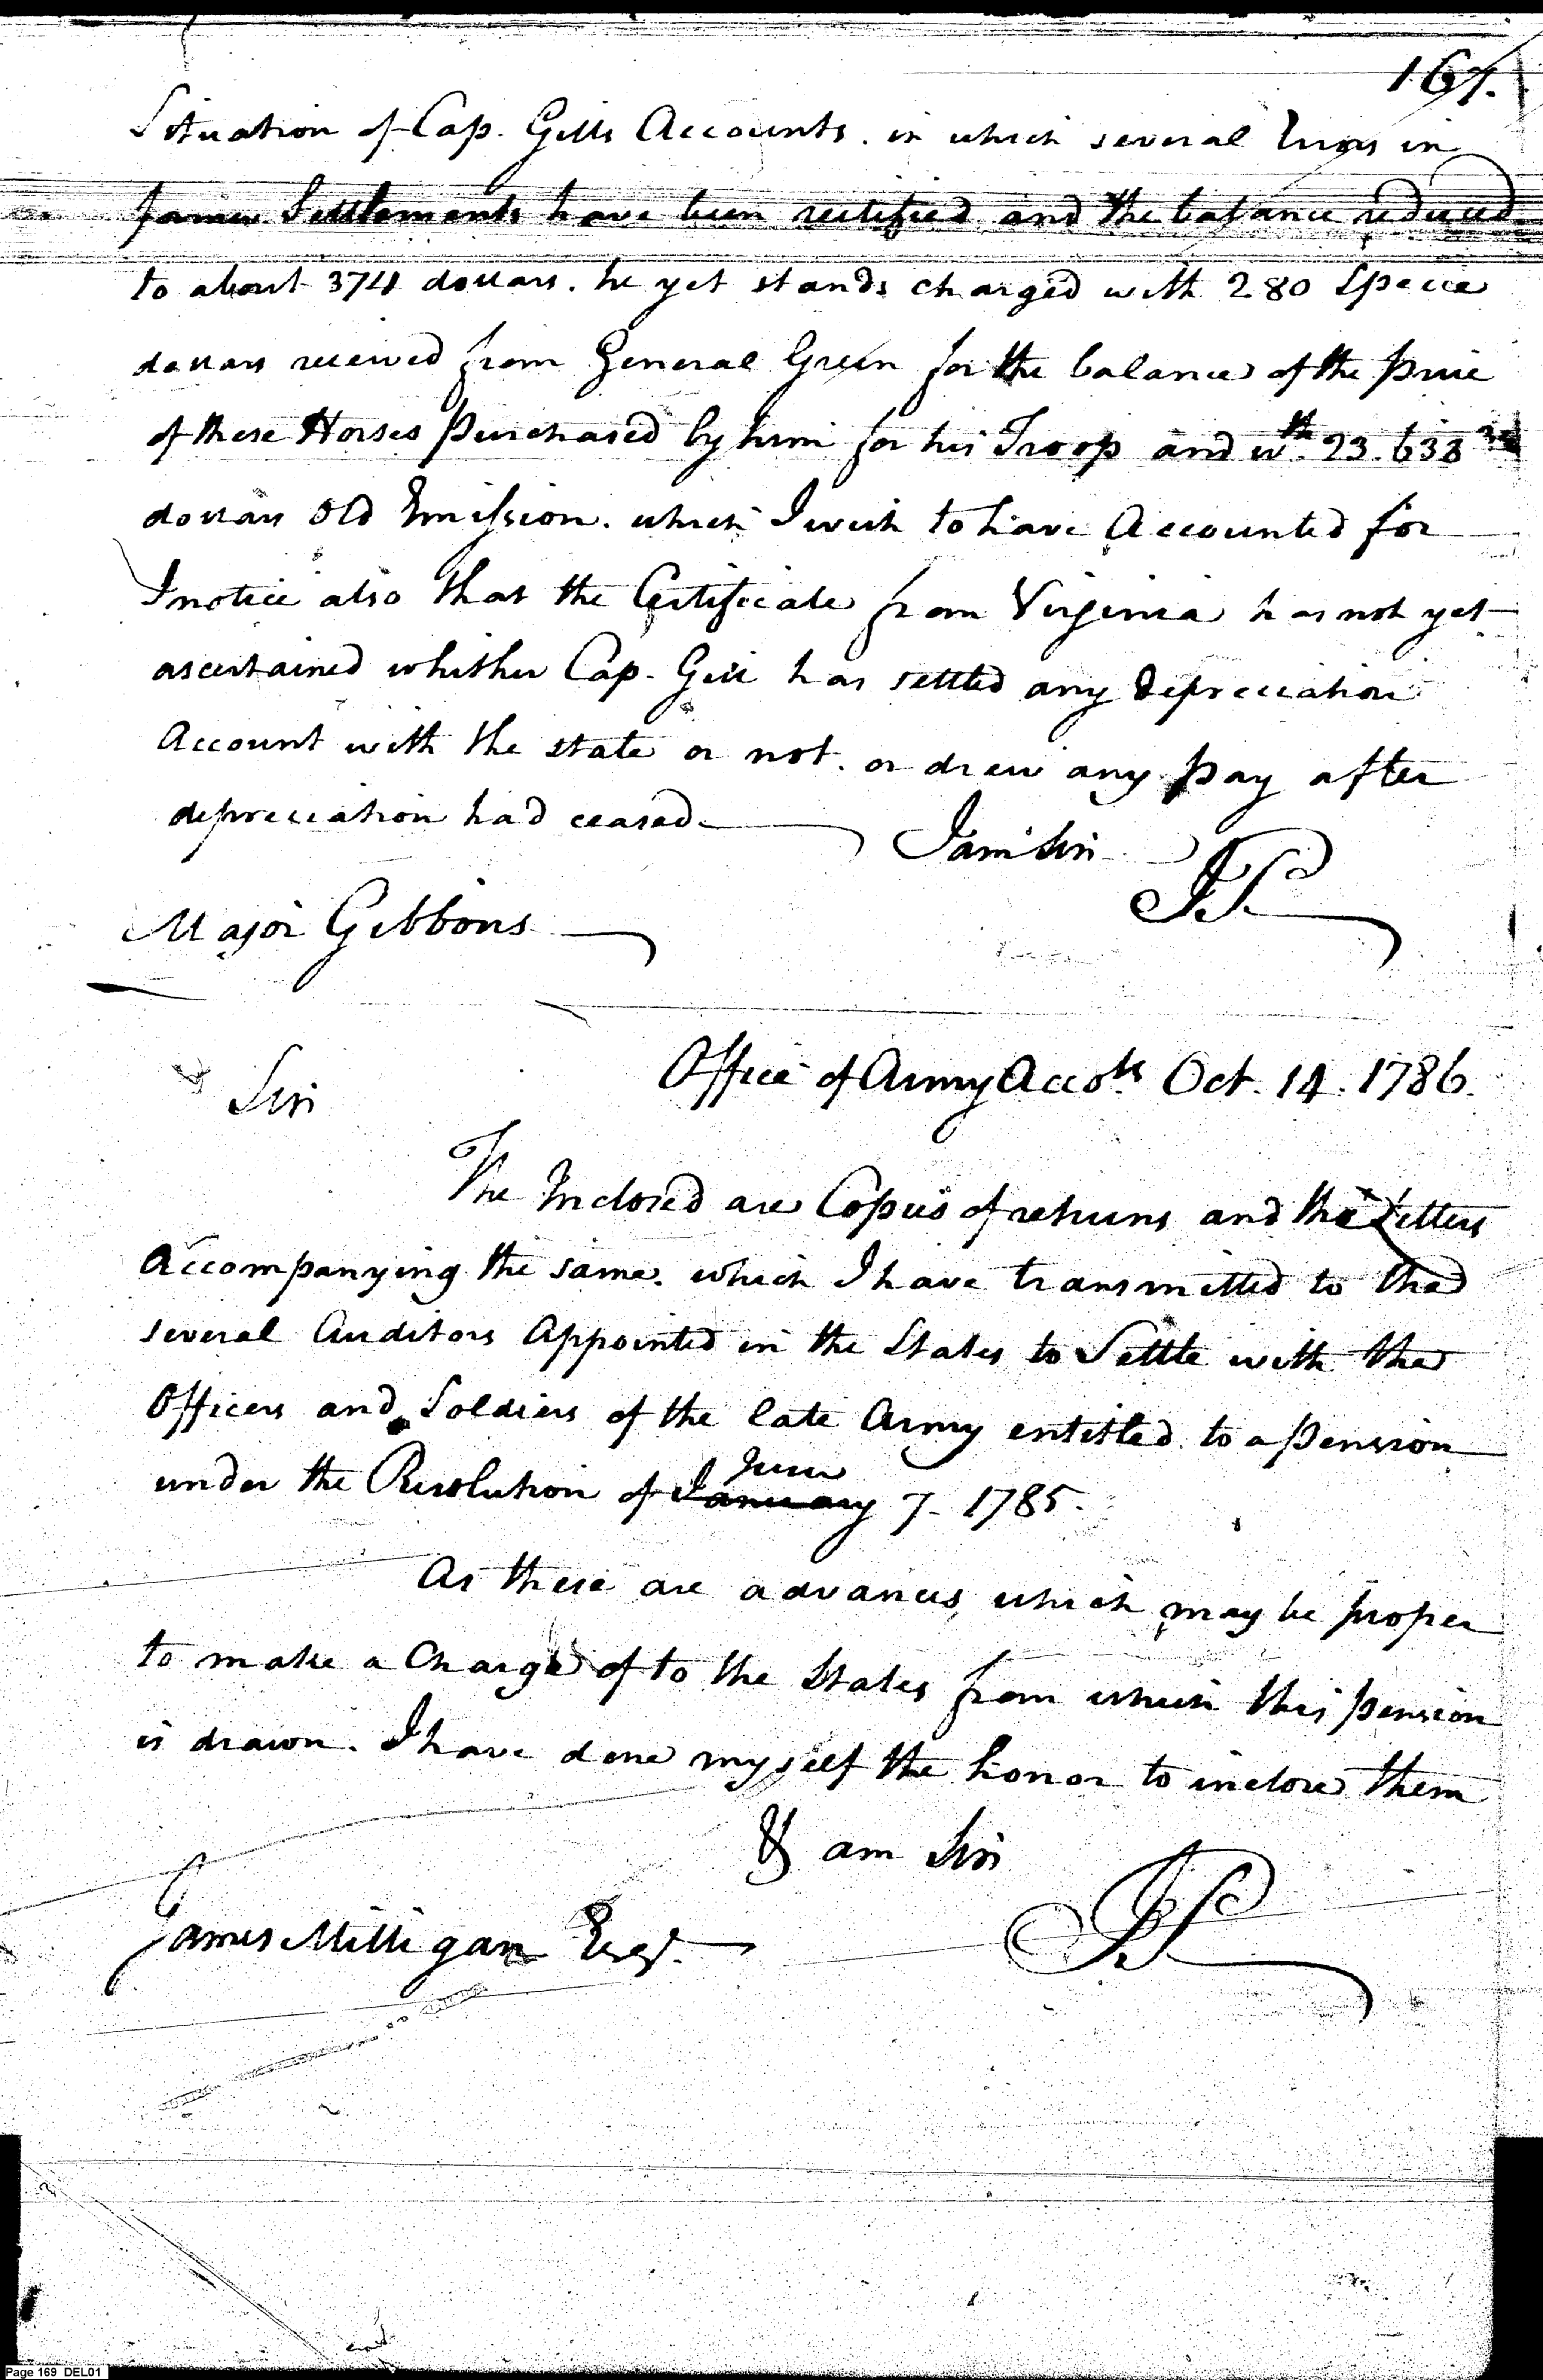 167.
Situation of Cap. Gills Accounts. in which several Errors in
former Settlements have been rectified and the balance reduced
to about 374 dollars. he yet stands charged with 280 Specie
dollars received from General Green for the balance of the price
of these Horses purchased by him for his Troop and wth. 23.633
dollars Old Emission. which I wish to have Accounted for
I notice also that the Certificate from Virginia has not yet
ascertained whither Cap. Gill has settled any depreciation
Account with the state or not. or drew any pay after
depreciation had ceased.
I am Sir
JP
Major Gibbons
Office of Army Accots Oct. 14. 1786.
Sir
The Inclosed are Copies of returns and the Letters
Accompanying the same. which I have transmitted to the
several Auditors Appointed in the States to Settle with the
Officers and Soldiers of the late Army entitled to a pension
June
under the Resolution of January 7. 1785.
As these are advances which may be proper
to make a Charge of to the States from which this pension
is drawn. I have done myself the honor to inclose them
& am Sir
JP
James Milligan Esqr.
Page 169 DEL01